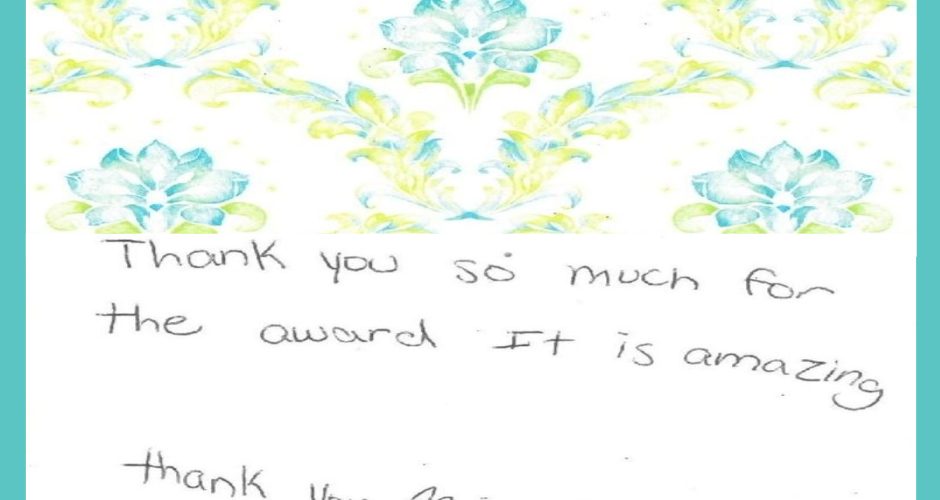 Thank you so much for
the award It is amazing
thank you